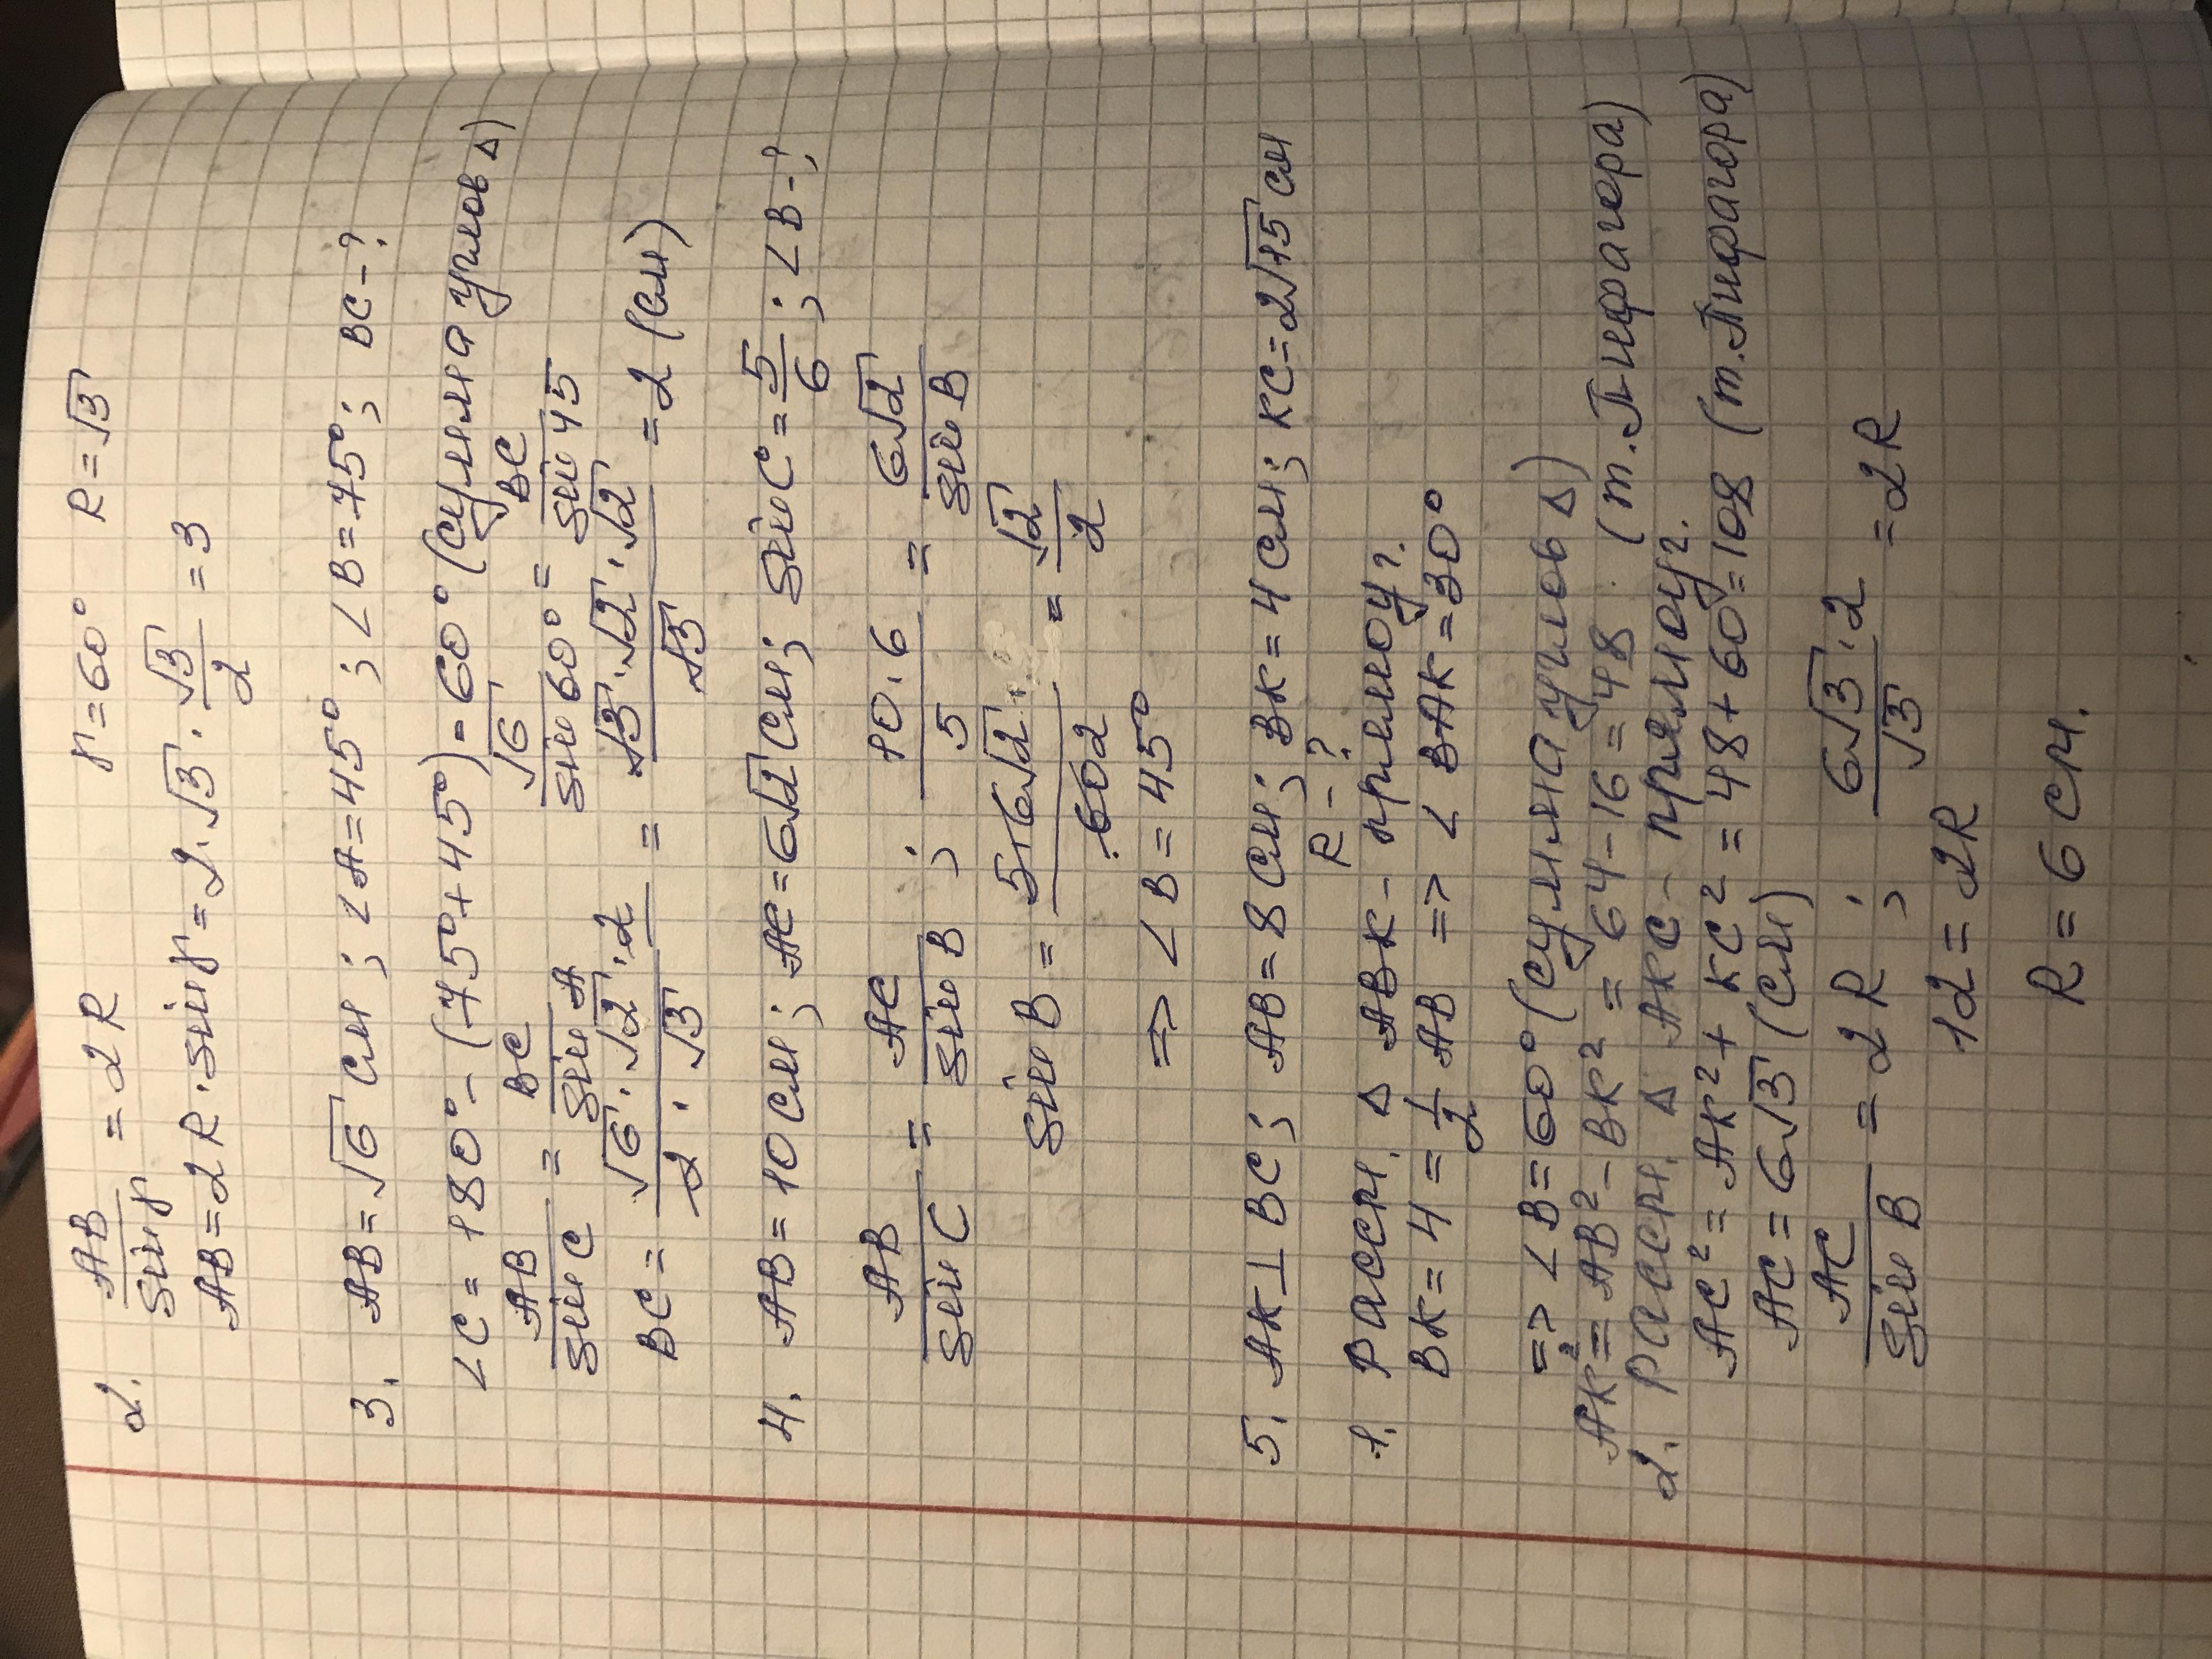 2. AB/sin γ = 2R γ = 60° R = √3
AB = 2R · sin γ = 2 · √3 · √3/2 = 3
3. AB = √6 см ; ∠A = 45° ; ∠B = 75° ; BC - ?
∠C = 180° - (75° + 45°) = 60° (сумма углов Δ)
AB/sin C = BC/sin A √6/sin 60° = BC/sin 45
BC = √6 · √2 · 2/2 · √3 = √3 · √2 · √2/√3 = 2 (см)
4. AB = 10 см ; AC = 6√2 см ; sin C = 5/6 ; ∠B - ?
AB/sin C = AC/sin B ; 10 · 6/5 = 6√2/sin B
sin B = 5 · 6√2/602 = √2/2
=> ∠B = 45°
5. AK ⊥ BC ; AB = 8 см ; BK = 4 см ; KC = 2√15 см
R - ?
1. Рассм. Δ ABK - прямоуг.
BK = 4 = 1/2 AB => ∠ BAK = 30°
=> ∠B = 60° (сумма углов Δ)
AK² = AB² - BK² = 64 - 16 = 48 (т. Пифагора)
2. Рассм. Δ AKC - прямоуг.
AC² = AK² + KC² = 48 + 60 = 108 (т. Пифагора)
AC = 6√3 (см)
AC/sin B = 2R ; 6√3 · 2/√3 = 2R
12 = 2R
R = 6 см.